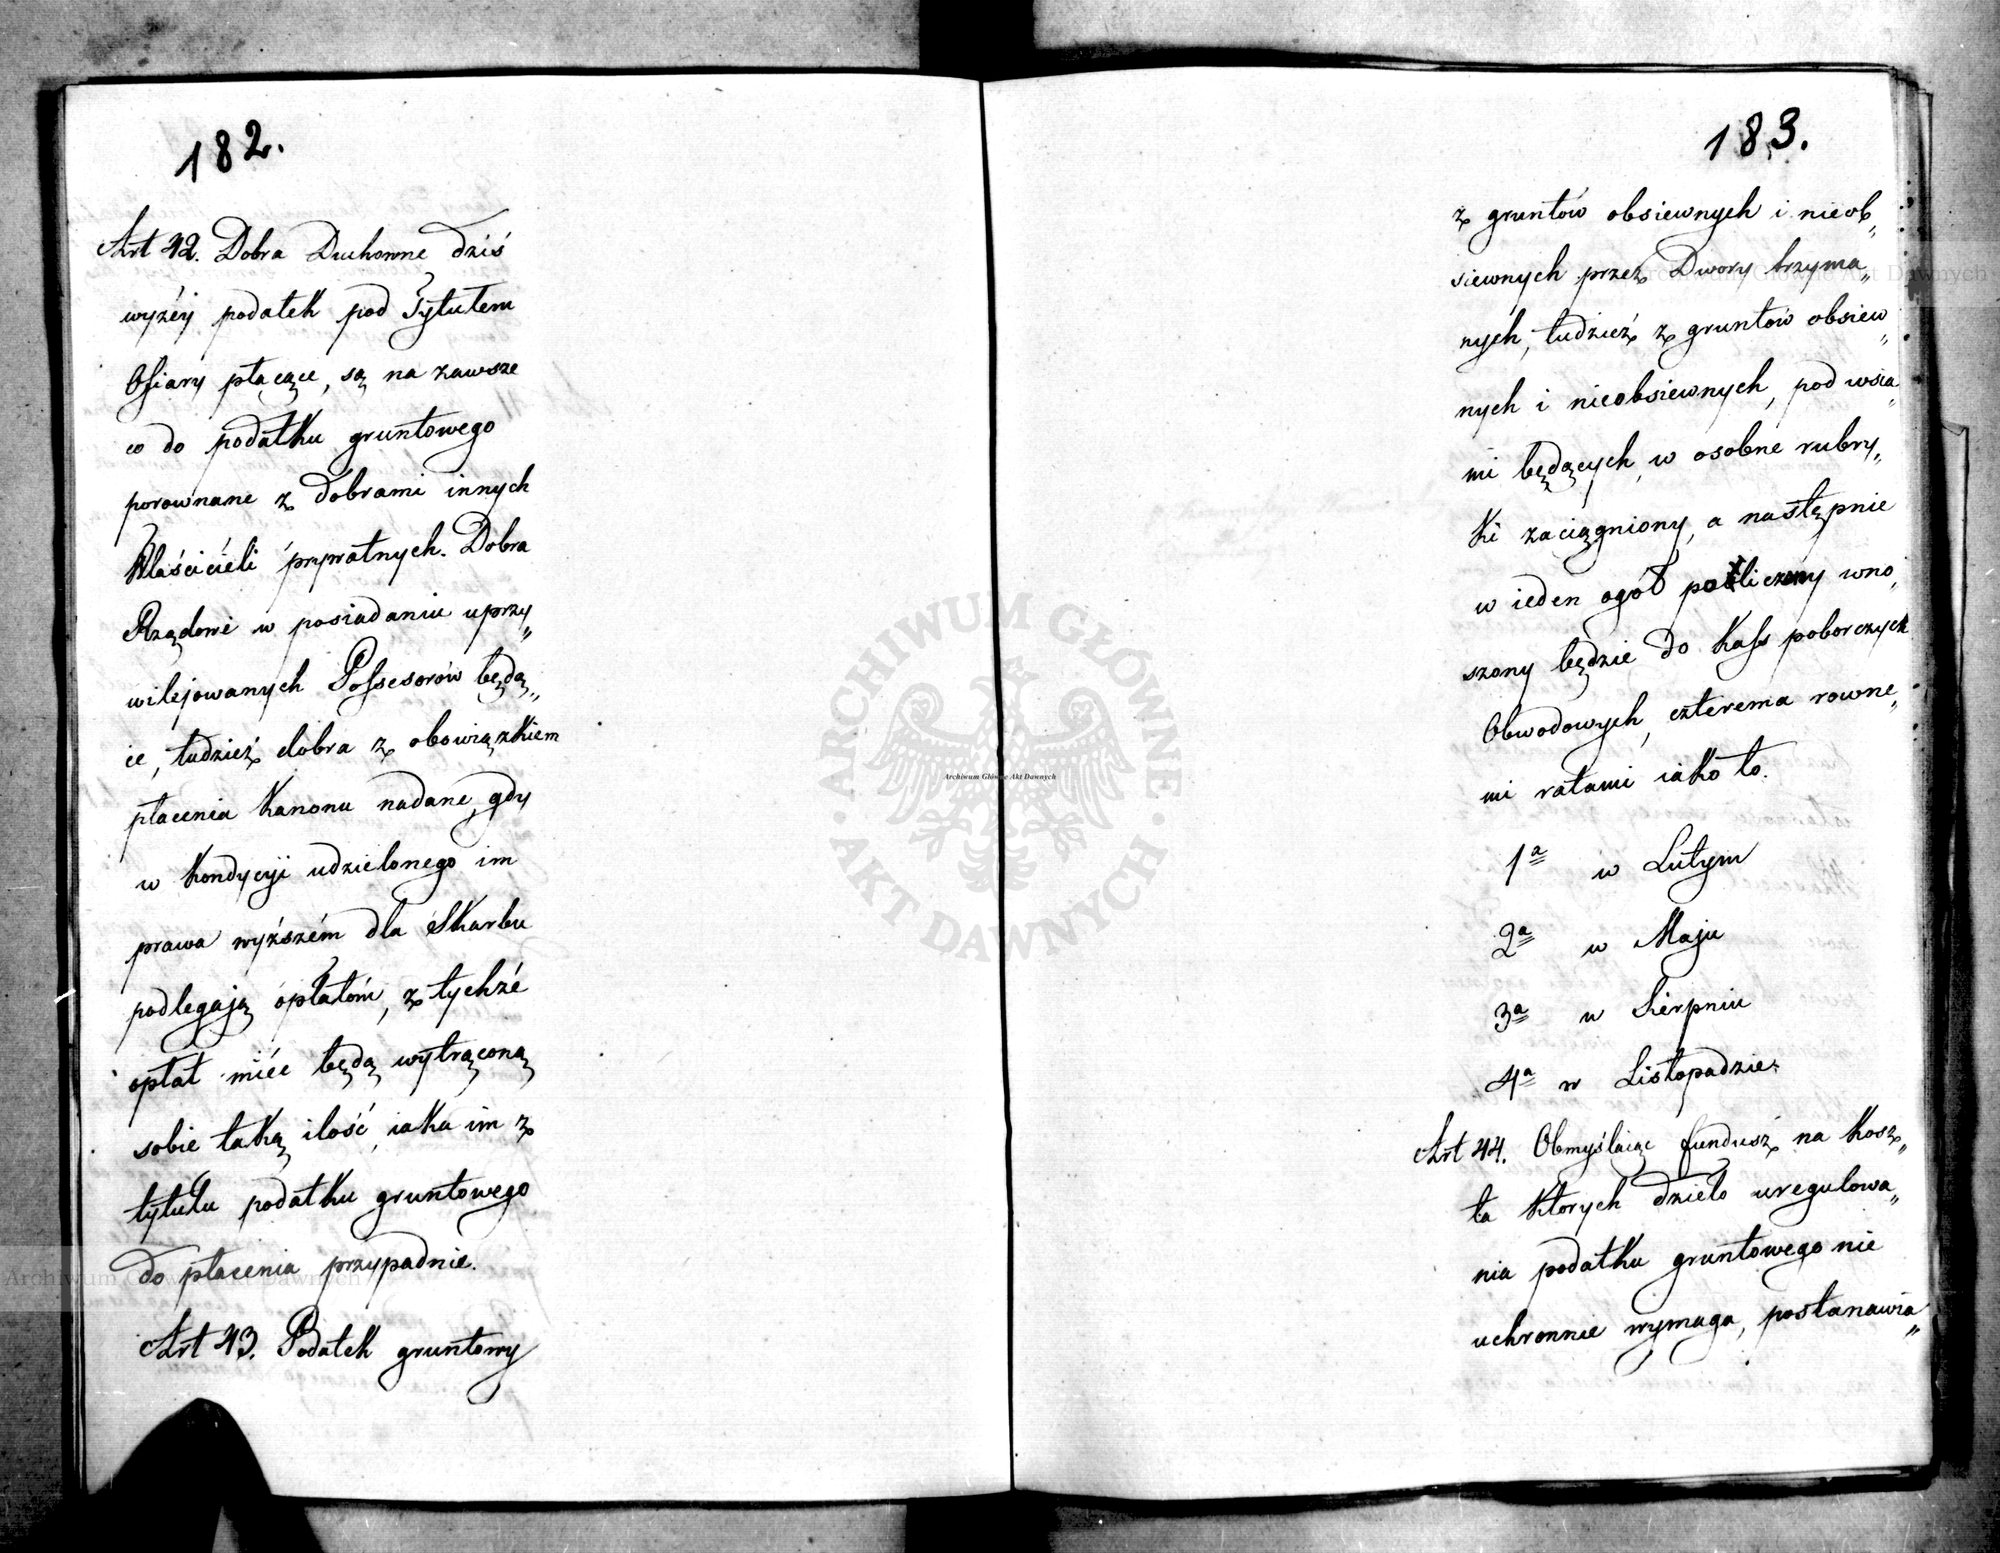 182.
Art 42. Dobra Duchowne dziś
wyżéy podatek pod Tytułem
Ofiary płacące, są na zawsze
co do podatku gruntowego
porownane z dobrami innych
Właścicieli prywatnych. Dobra
Rządowe w posiadaniu uprzy„
wilejowanych Possesorów będą„
ce, tudzież dobra z obowiązkiem
płacenia Kanonu nadane, gdy
w Kondycyi udzielonego im
prawa wyższém dla Skarbu
podlegają opłatom, z tychże
opłat mieć będą wytrąconą
sobie taką ilość, iaka im z
tytułu podatku gruntowego
do płacenia przypadnie.
Art 43. Podatek gruntowy
183.
z gruntów obsiewnych i nieob„
siewnych przez Dwory trzyma„
nych, tudzież z gruntów obsiew„
nych i nieobsiewnych, pod wsia„
mi będących, w osobne rubry„
ki zaciągniony, a następnie
w ieden ogół policzony wno„
szony będzie do Kass poborczych
Obwodowych, czterema rowne„
mi ratami iako to.
1a w Lutym
2a w Maju
3a w Sierpniu
4a w Listopadzie.
Art 44. Obmyślaiąc fundusz na kosz„
ta których dzieło uregulowa„
nia podatku gruntowego nie
uchronnie wymaga, postanawia„
ARCHIWUM GŁÓWNE AKT DAWNYCH
Archiwum Główne Akt Dawnych
Archiwum Główne Akt Dawnych
Archiwum Główne Akt Dawnych